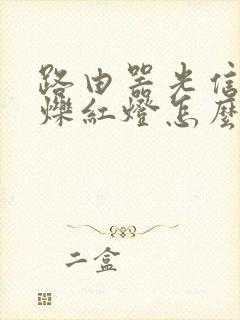 路由器光信
爍紅燈怎麼
二盒